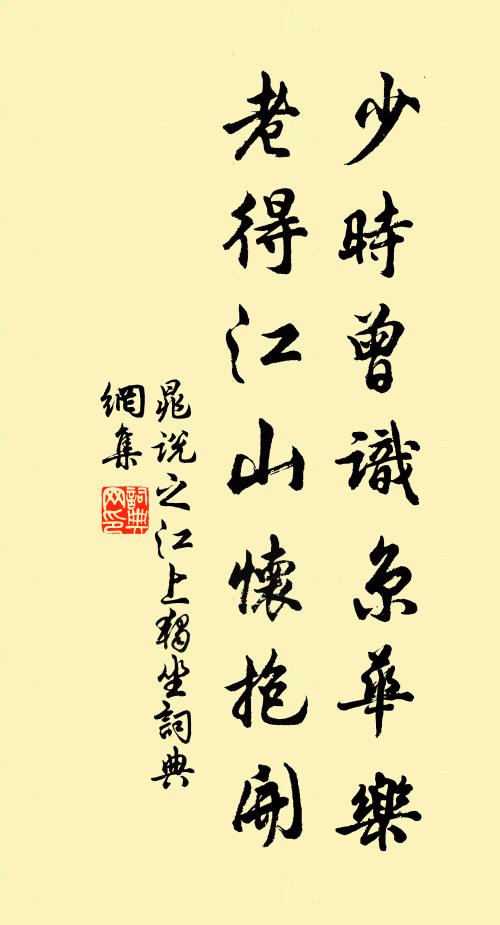 少時曾識京華樂
老得江山懷抱開
晁說之江上獨坐詞典
網集
詞典
网印